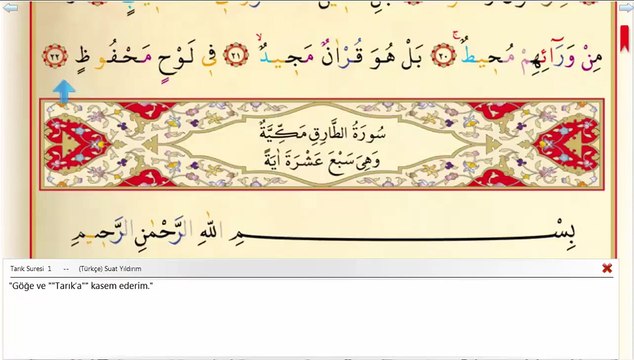 مِنْ وَرَٓائِهِمْ مُح۪يطٌۚ ﴿٢٠﴾ بَلْ هُوَ قُرْاٰنٌ مَج۪يدٌۙ ﴿٢١﴾ ف۪ي لَوْحٍ مَحْفُوظٍ ﴿٢٢﴾
سُورَةُ الطَّارِقِ مَكِّيَّةٌ
وَهِيَ سَبْعَ عَشْرَةَ اٰيَةً
بِسْمِ اللّٰهِ الرَّحْمٰنِ الرَّح۪يمِ
Tarık Suresi 1 -- (Türkçe) Suat Yıldırım
"Göğe ve ""Tarık'a"" kasem ederim."